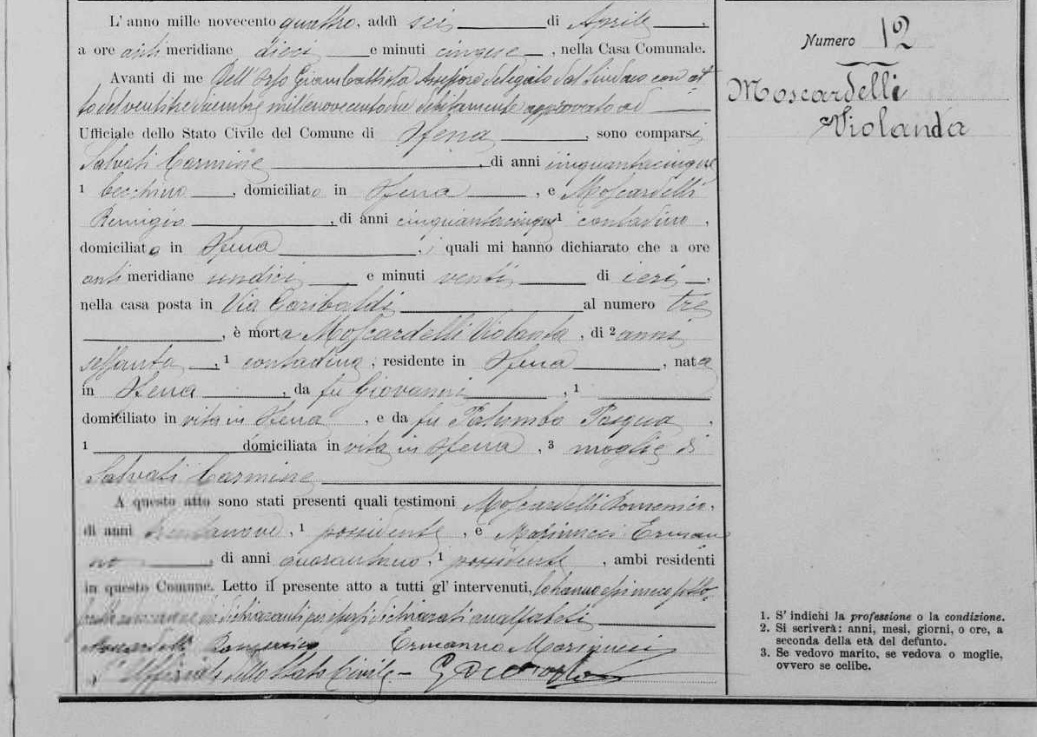 L' anno mille novecento quattro, addì sei di Aprile,
a ore antimeridiane dieci e minuti cinque, nella Casa Comunale.
Avanti di me Dell' Giambattista delegato dal Sindaco con at
to del ventitre dicembre millenovecento debitamente approvato ad
Ufficiale dello Stato Civile del Comune di Ofena, sono comparsi
Salvati Carmine, di anni cinquantacinque
1 becchino, domiciliato in Ofena, e Moscardelli
Remigio, di anni cinquantacinque 1 contadino,
domiciliato in Ofena, i quali mi hanno dichiarato che a ore
antimeridiane undici e minuti venti di ieri,
nella casa posta in Via Garibaldi al numero tre
, è morta Moscardelli Violanta, di 2 anni
sessanta, 1 contadina, residente in Ofena, nata
in Ofena, da fu Giovanni, 1
domiciliato in vita in Ofena, e da fu Palumbo Pasqua,
1 domiciliata in vita in Ofena, 3 moglie di
Salvati Carmine
A questo atto sono stati presenti quali testimoni Moscardelli Domenico,
di anni trentanove, 1 possidente, e Marinucci Erman
no, di anni quarantuno, 1 possidente, ambi residenti
in questo Comune. Letto il presente atto a tutti gl' intervenuti, lo hanno meco sotto
i dichiaranti per essersi dichiarati analfabeti
Moscardelli Domenico Ermanno Marinucci
L' Ufficiale dello Stato Civile –
Numero 12
Moscardelli
Violanda
1. S' indichi la professione o la condizione.
2. Si scriverà: anni, mesi, giorni, o ore, a
seconda della età del defunto.
3. Se vedovo marito, se vedova o moglie,
ovvero se celibe.